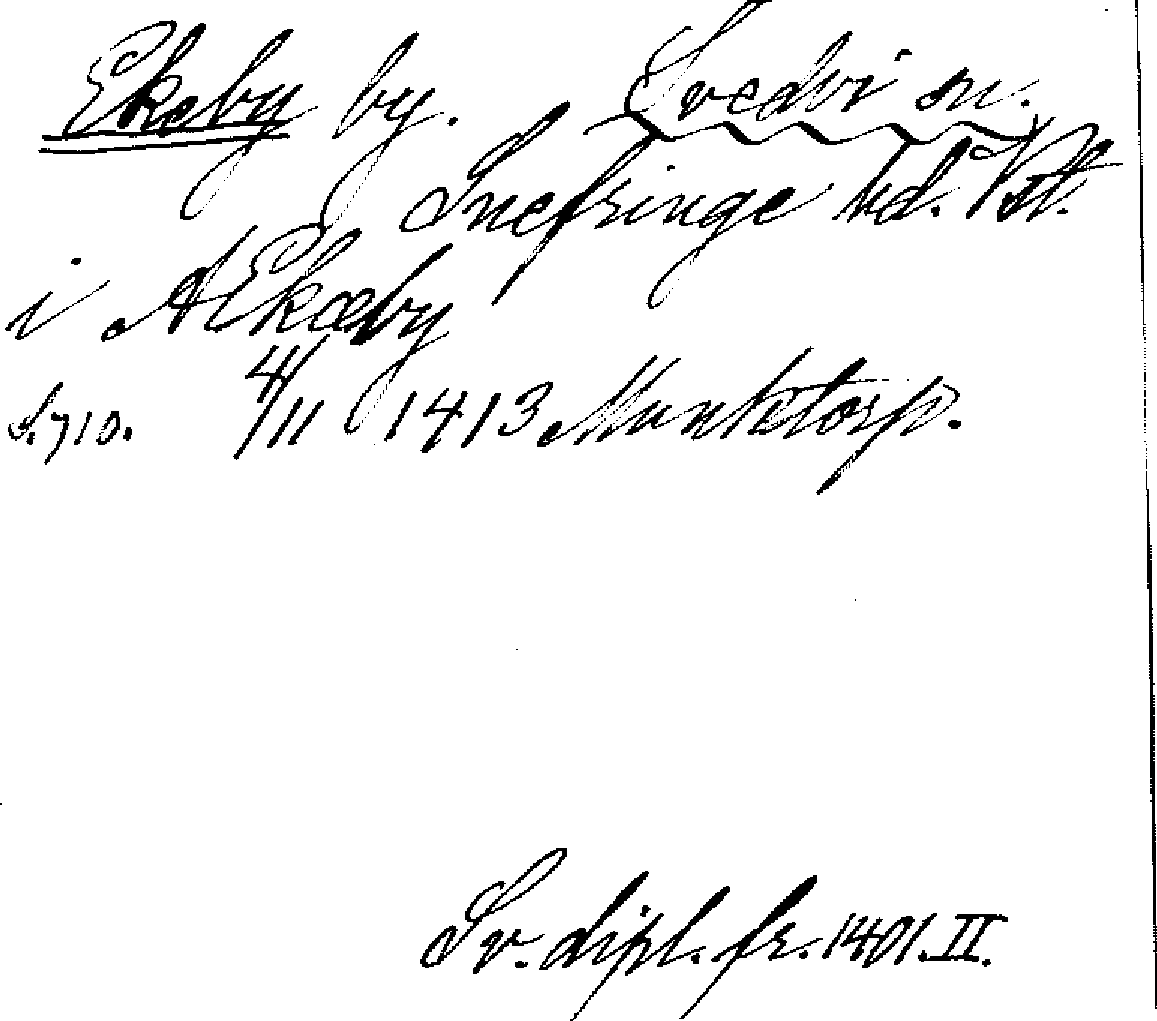 Ekeby by. Svedvi sn.
Snefringe hd. Vstl.
i AEkæby
S. 710. 4/11 1413 Munktorp.
Sv. dipl. fr. 1401. II.